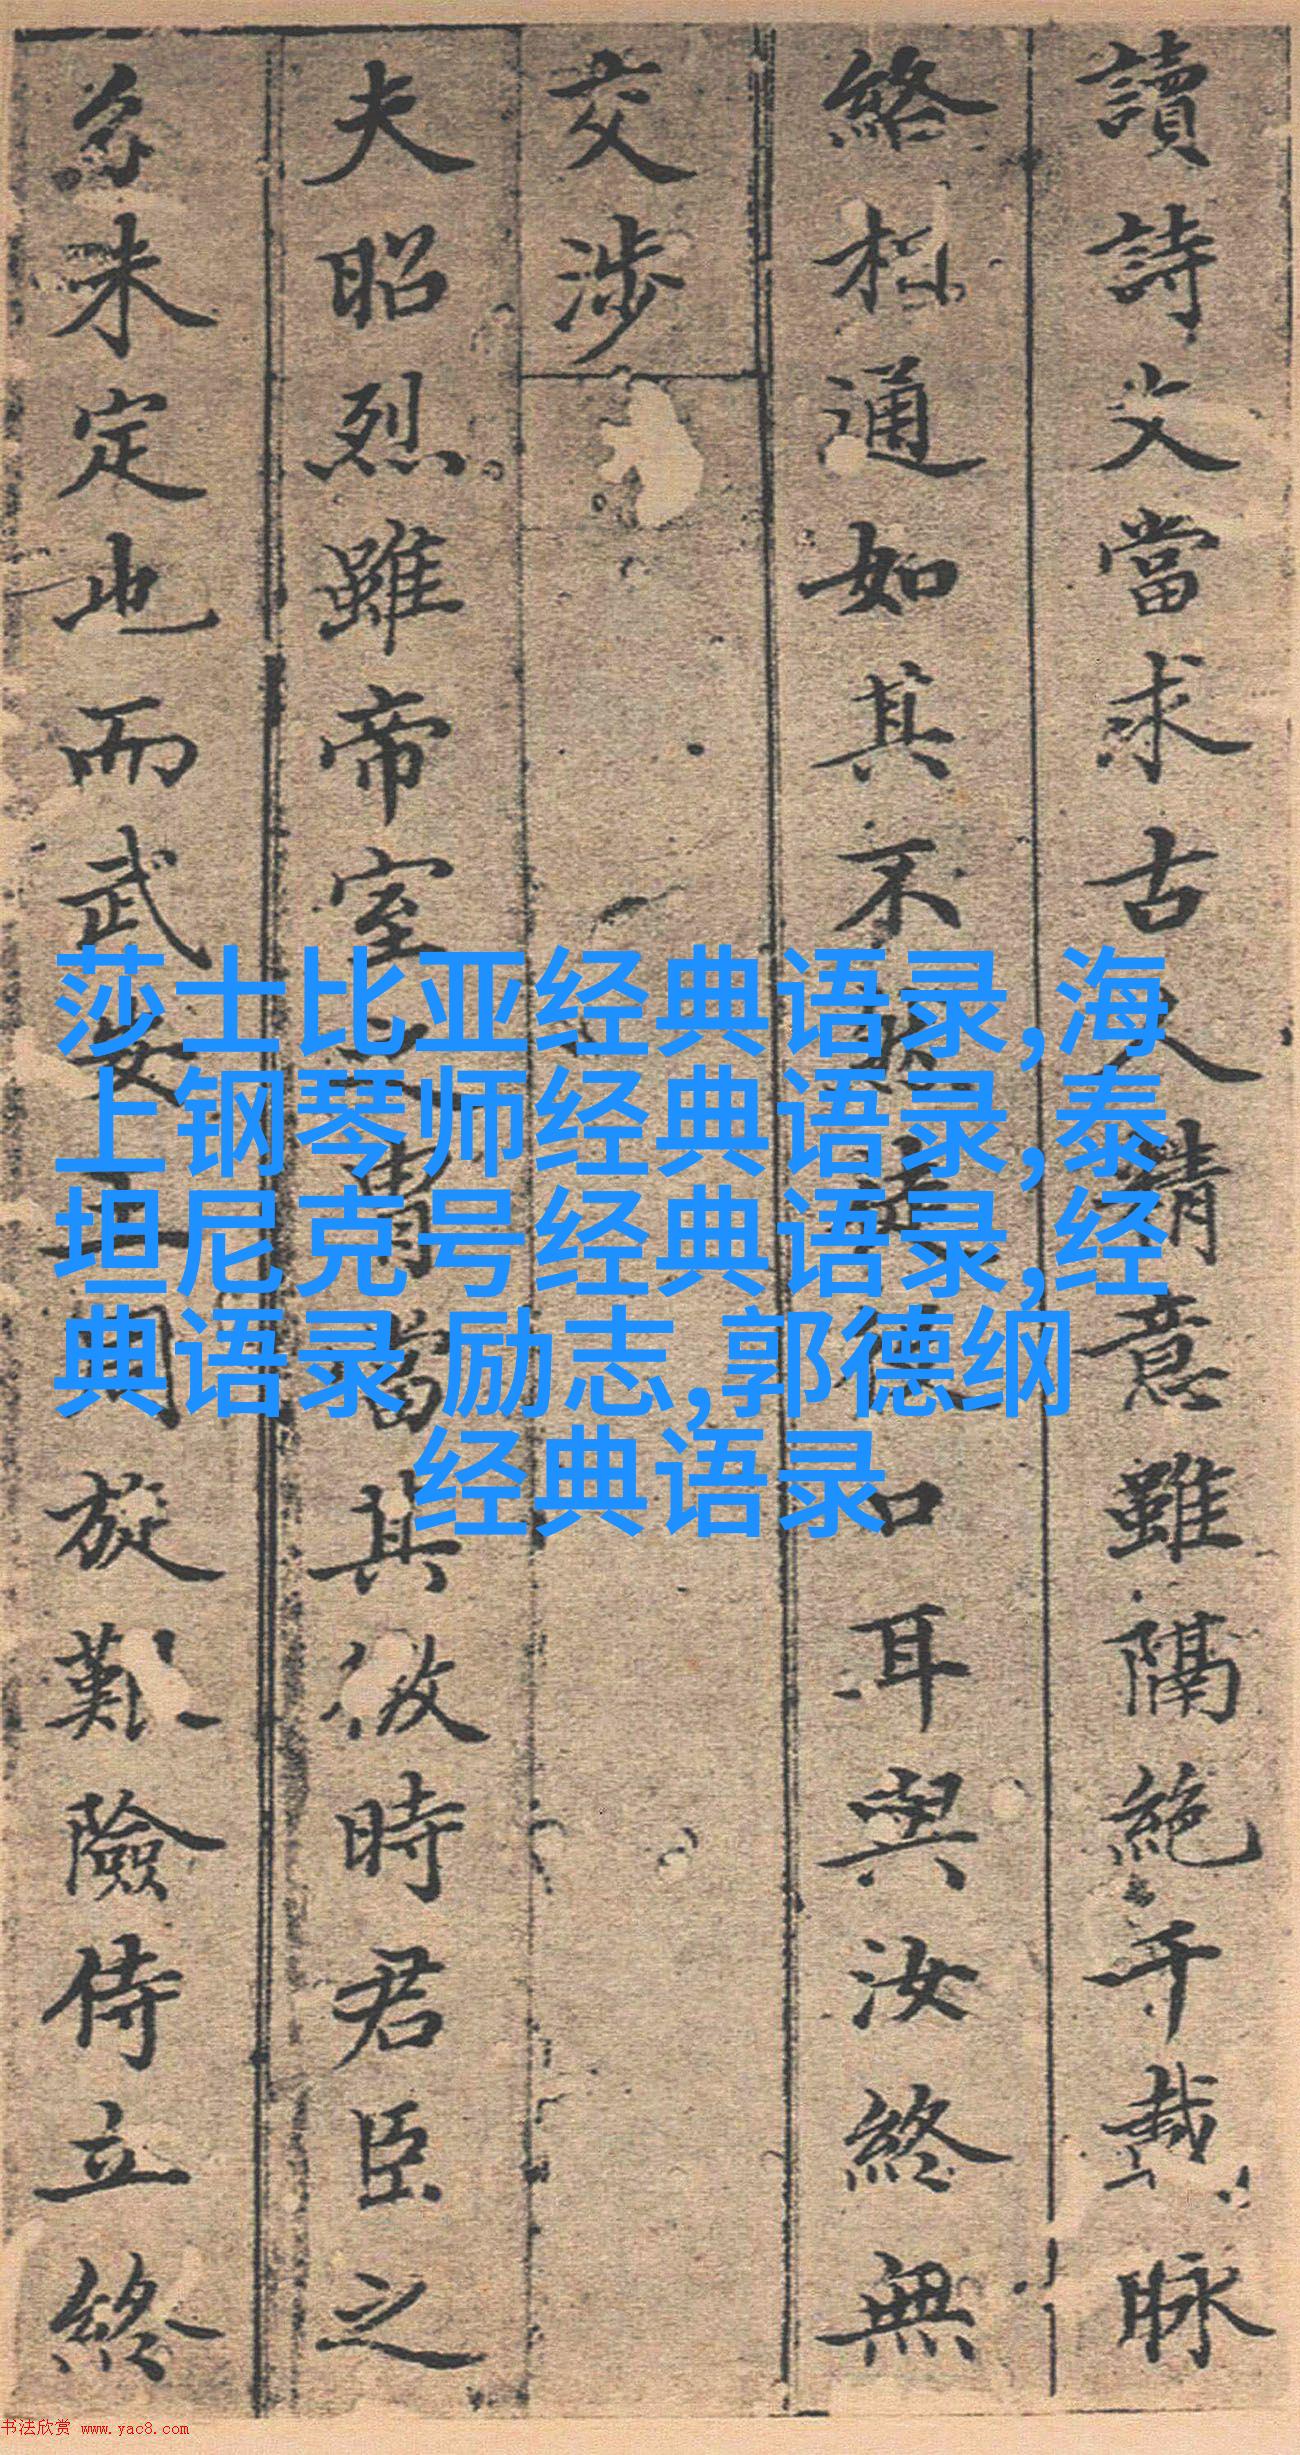 讀詩文當求古人情意雖隔絶千載脉
絡相通如其不口耳與汝終無
交涉
夫昭烈雖帝室之胄當其微時君臣之
分未定也而武安王周旋艱險侍立終
莎士比亚经典语录,海
上钢琴师经典语录,泰
坦尼克号经典语录,经
典语录 励志,郭德纲
经典语录
书法欣赏 www.yac8.com